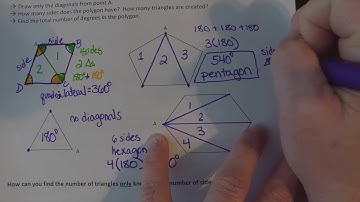 → Draw only the diagonals from point A.
→ How many sides does the polygon have? How many triangles are created?
→ Find the total number of degrees in the polygon.
side
B
side
1
2
D
4 sides
2 Δs
180°+180°
quadrilateral = 360°
A
1
2
3
180 + 180 + 180
3(180)
540°
pentagon
side
A
180°
no diagonals
A
1
2
3
4
6 sides
hexagon
4(180)
0°
How can you find the number of triangles only
number of